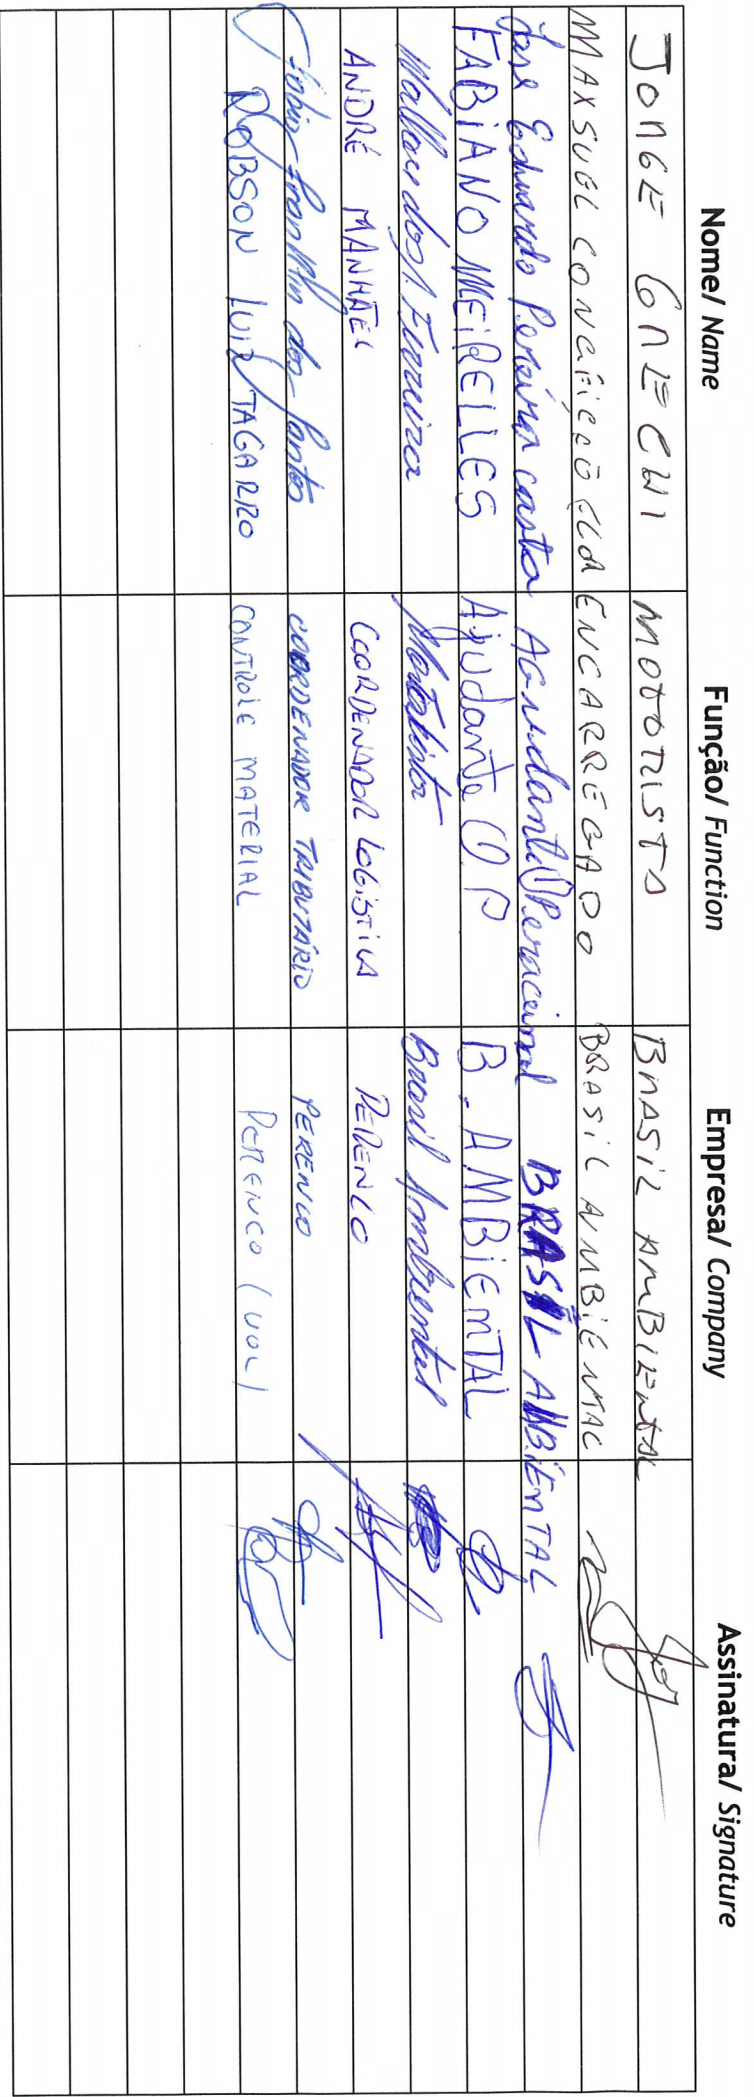 Nome/ Name Função/ Function Empresa/ Company Assinatura/ Signature
JORGE GRECHI MOTORISTA BRASIL AMBIENTAL
MAXSUEL CONCEIÇÃO ENCARREGADO BRASIL AMBIENTAL
José Eduardo Pereira costa Operacional BRASIL AMBIENTAL
FABIANO MEIRELLES Ajudante O P B. AMBiEMTAL
Ferreira Motorista Brasil Ambiental
ANDRÉ COORDENADOR LOGÍSTICA PERENCO
Franklin dos Santos COORDENADOR TRIBUTÁRIO PERENCO
ROBSON LUIZ TAGARRO CONTROLE MATERIAL PERENCO